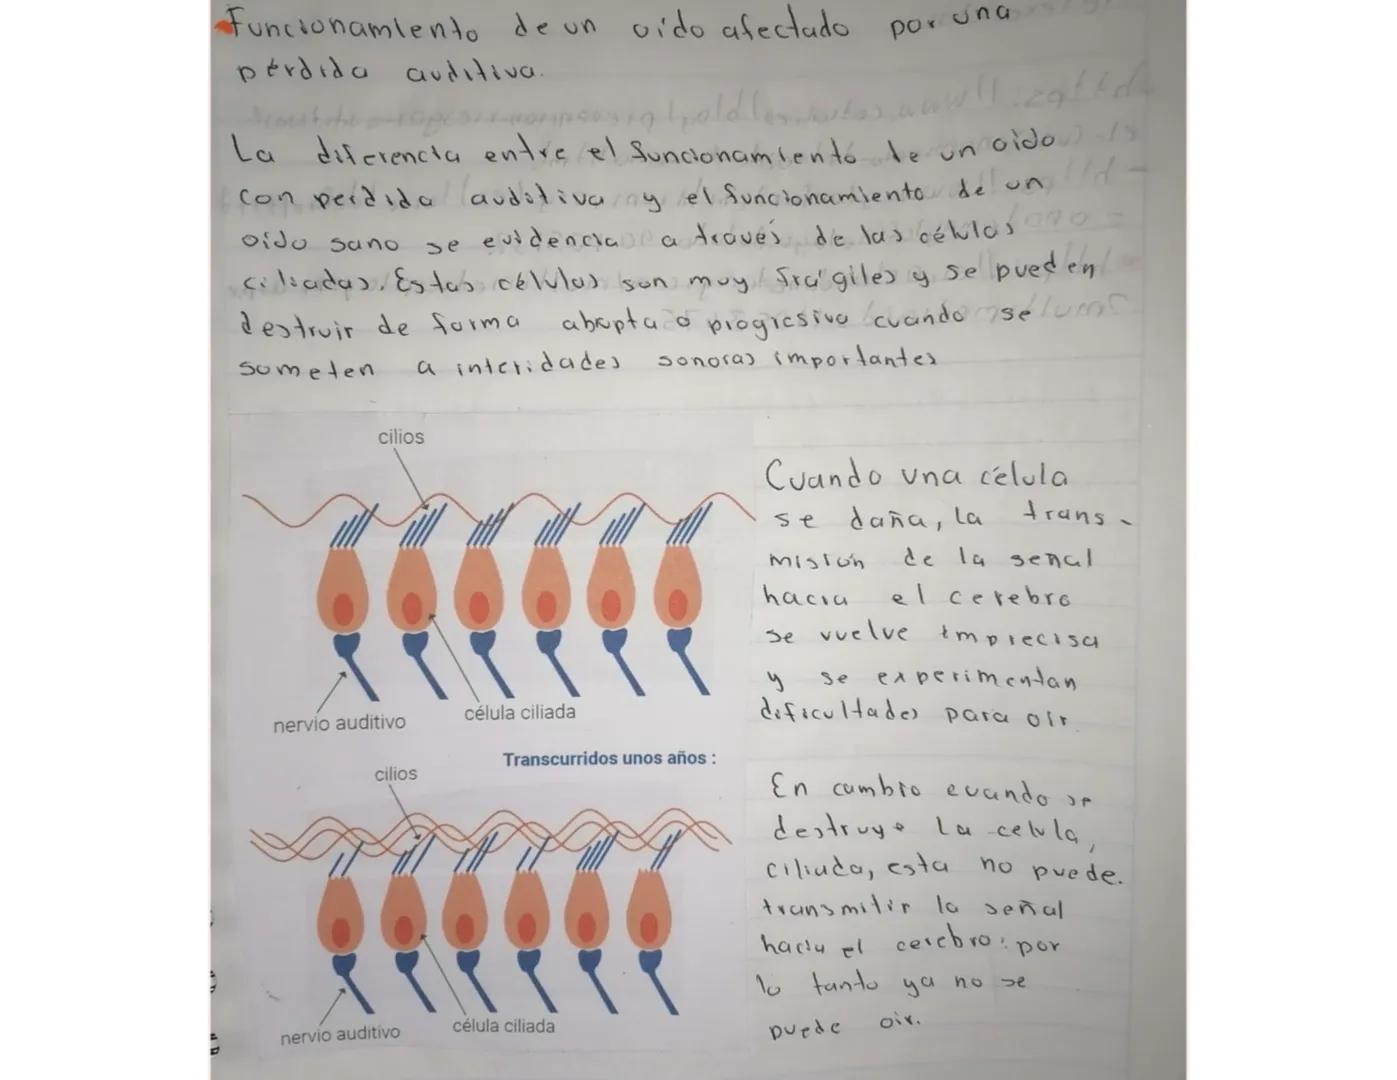 Funcionamiento de un oído afectado por una
pérdida auditiva.
La diferencia entre el funcionamiento de un oido
con perdida auditiva y el funcionamiento de un
oido sano se evidencia a través de las células
ciliadas. Estas células son muy frágiles y se pueden
destruir de forma abrupta o progresiva cuando se
someten a intensidades sonoras importantes
cilios
nervio auditivo
célula ciliada
Cuando una célula
se daña, la trans-
misión de la señal
hacia el cerebro
se vuelve imprecisa
y se experimentan
dificultades para oir
Transcurridos unos años :
cilios
nervio auditivo
célula ciliada
En cambio cuando se
destruye la celula,
ciliada, esta no puede.
transmitir la señal
hacia el cerebro: por
lo tanto ya no se
puede oir.